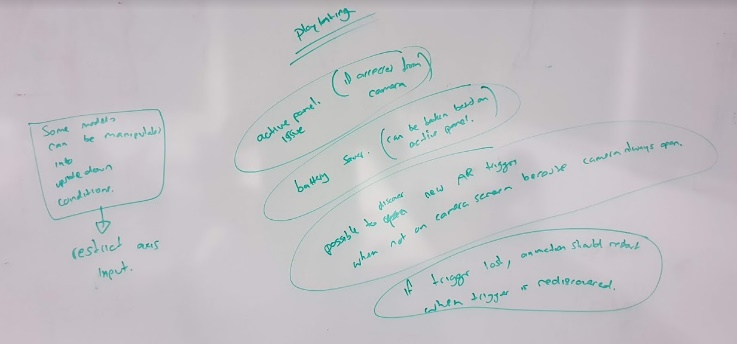 playtesting
Some models
can be manipulated
into
upside down
conditions.
restrict axis
input.
active panel. (if accessed from
issue camera)
battery saver. (can be broken based on
active panel.)
discover
possible to open new AR trigger
when not on camera screen because camera always open.
if trigger lost, animation should restart
when trigger is rediscovered.